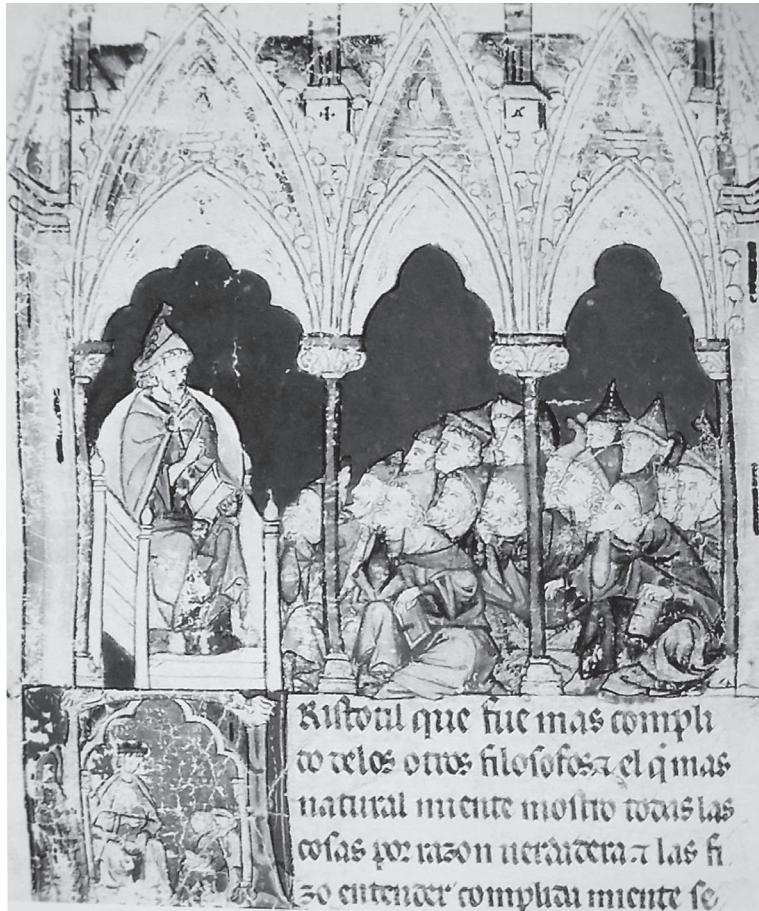 Ristotil que fue mas compli
do delos otros filosofos ⁊ el q̃ mas
natural miente mostro todas las
cosas por razon uerdadera ⁊ las fi
zo entender complida miente se